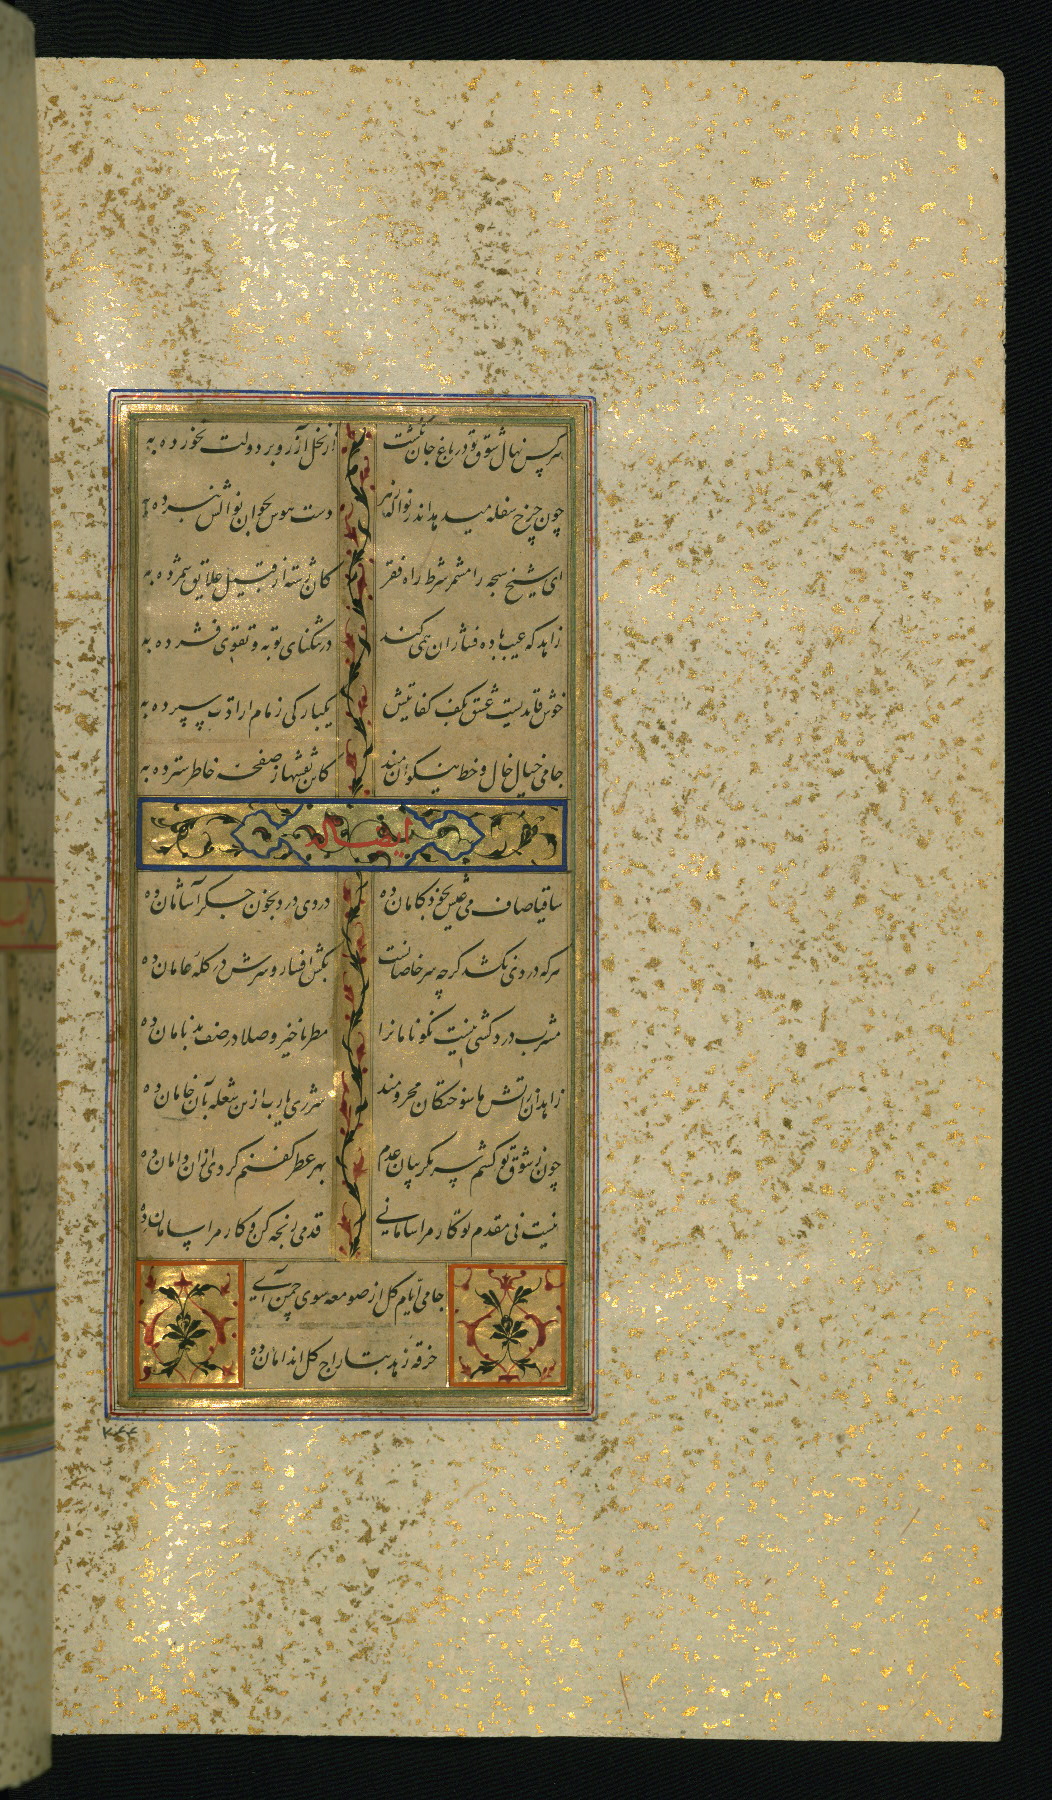 هرکس نهال شوق تو در باغ جان نکشت از نخل آرزو بر دولت نخورده به
چون چرخ سفله میدهد اندر نواله زهر دست هوس بخوان نوالش نبرده به
ای شیخ سبحه را مشمر شرط راه فقر کان رشته از قبیل علایق شمرده به
زاهد که عیب باده فشاران همی کند در تنگنای توبه و تقوی فشرده به
خوش قایدیست عشق بکف کفایتش یکبارکی زمام ارادت سپرده به
جامی خیال خال و خط نیکوان مبند کاین نقشها ز صفحه خاطر سترده به
ایضاله
ساقیا صاف می عیش بخودکامان ده دردی درد بخون جگر آشامان ده
هرکه دردی نکشد کرچه سر خاصانست بکش افسار و سرش در کله عامان ده
مشرب دردکشی نیست نکونامانرا مطربا خیز و صلا در صف بدنامان ده
زاهدان زاتش ما سوختکان محرومند شرری یارب ازین شعله بآن خامان ده
چون ز شوق تو کشم سر بکریبان عدم بهر عطر کفنم کردی ازان دامان ده
نیست بی مقدم تو کار مرا سامانی قدمی رنجه کن و کار مرا سامان ده
جامی ایام کل از صومعه سوی چمن آی
خرقه زهد بتاراج کل اندامان ده
۲۴۴